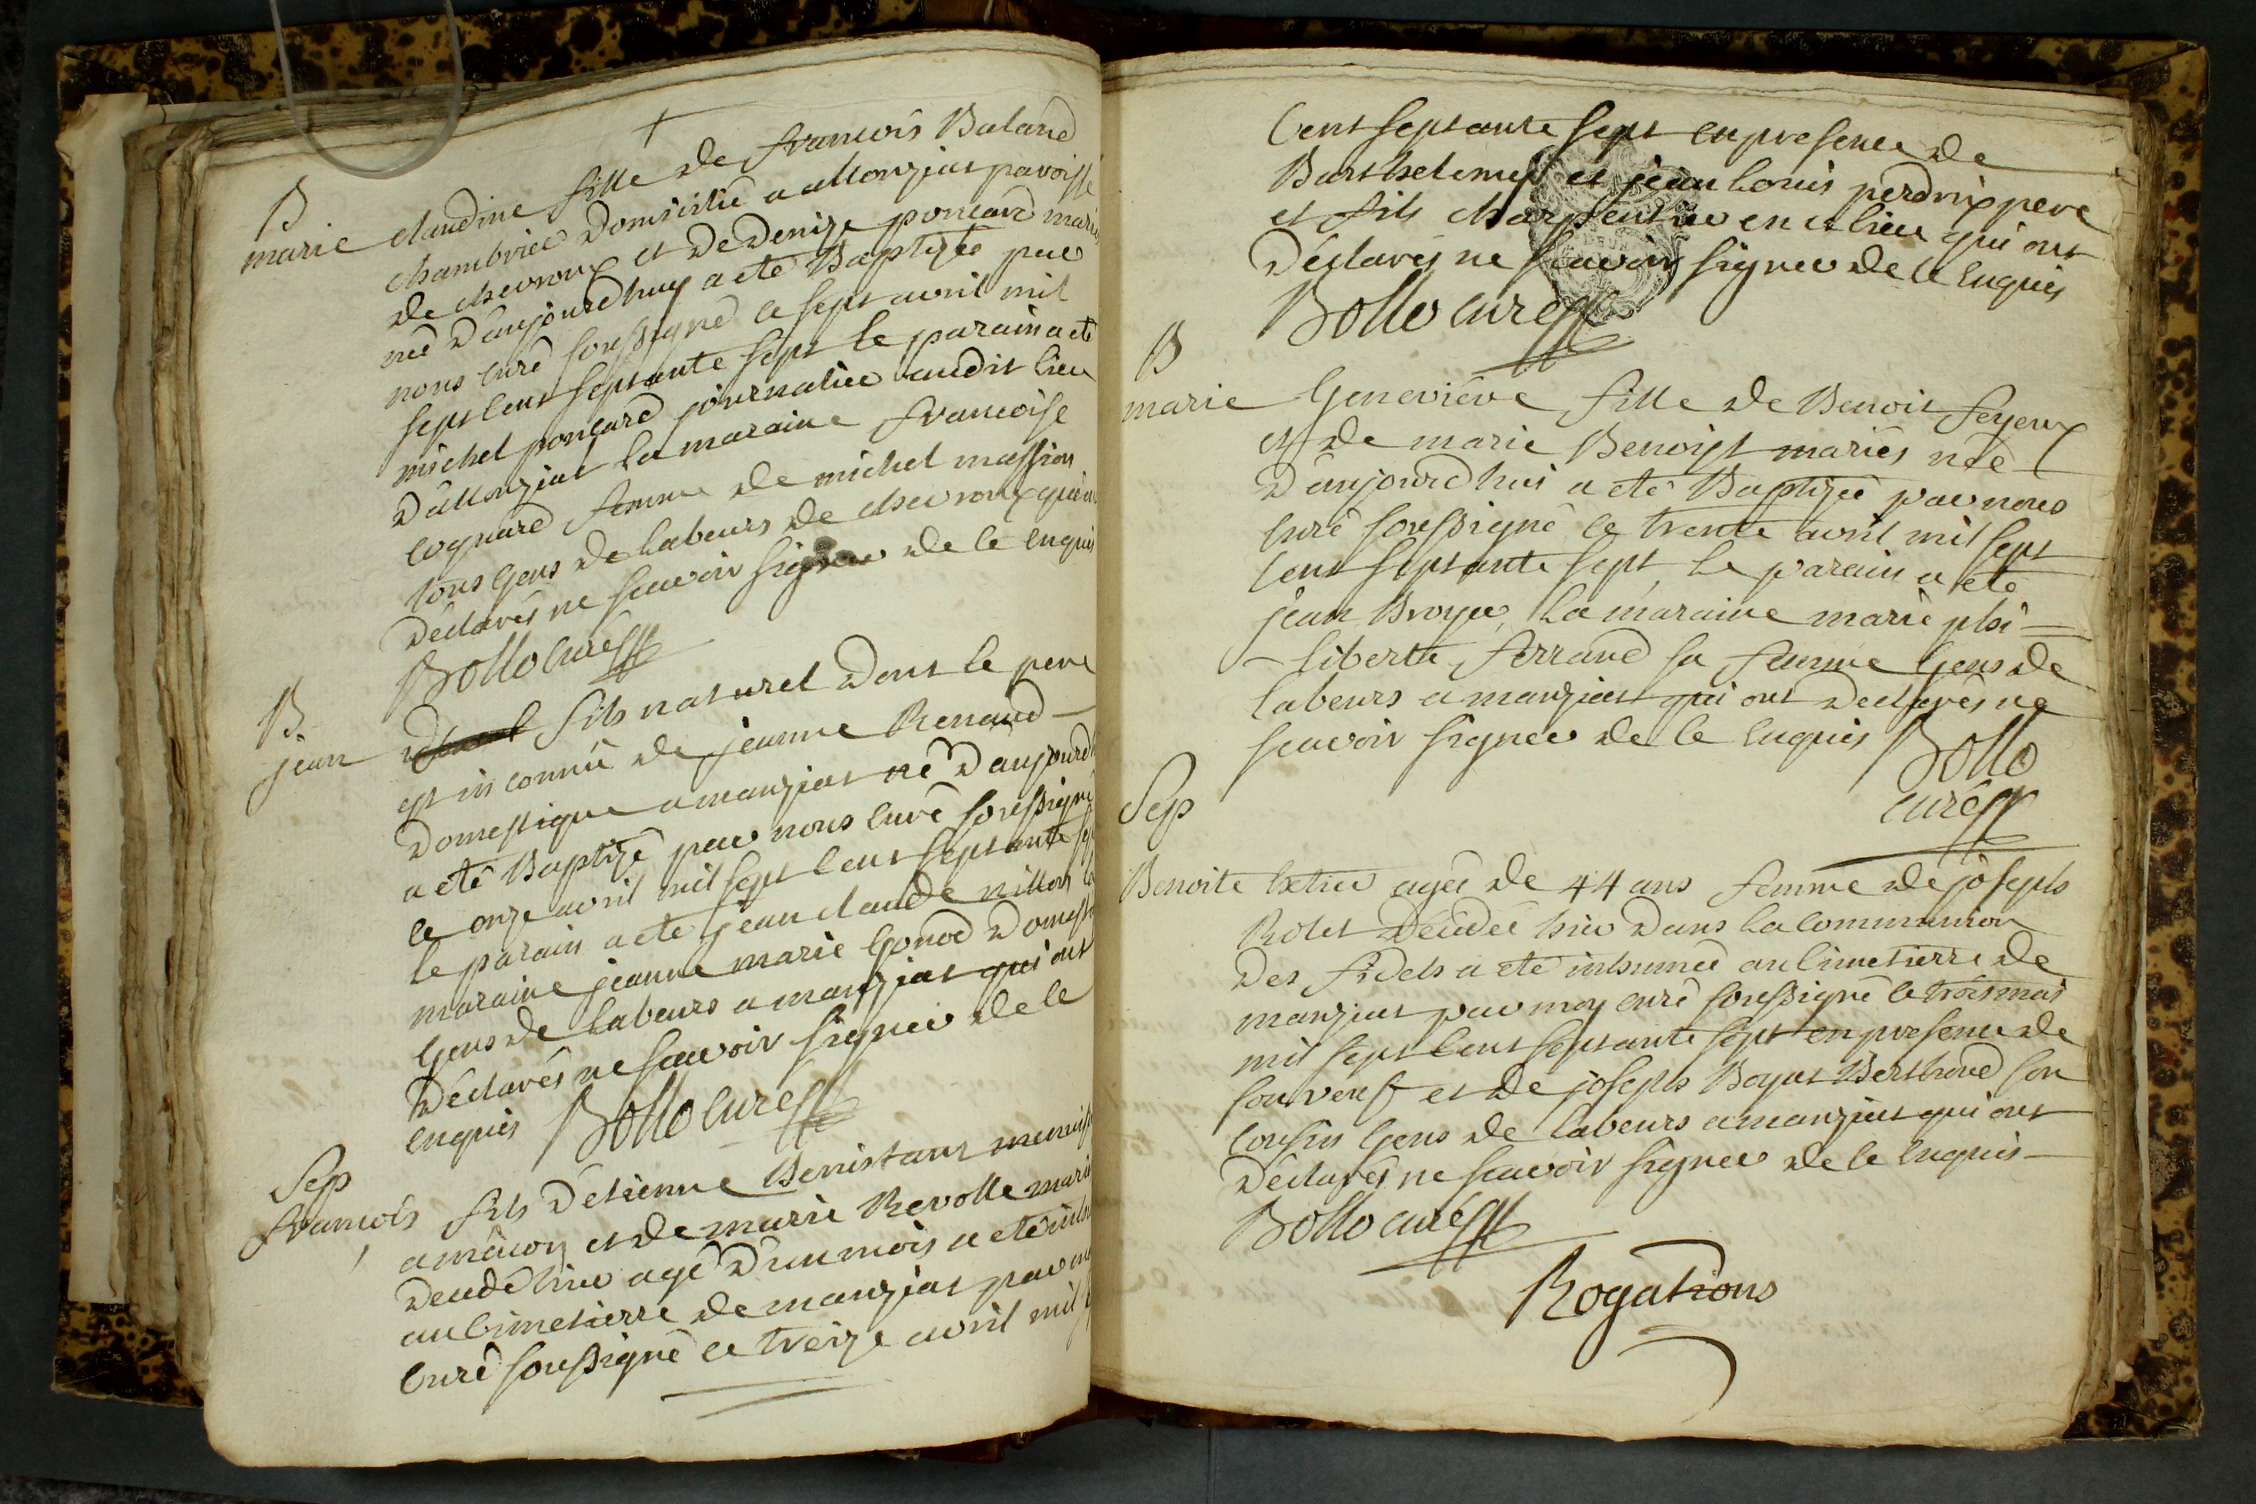 B
marie claudine fille de francois Baland
chambrier domicilié a allonziat paroisse
de chevroux et de denize poncard mariés
neé d'aujourdhuy a eté Baptizeé par
nous curé soussigné le sept avril mil
sept cent septante sept le parain a eté
michel poncard journalier audit lieu
d'allonziat la maraine francoise
coguard femme de michel massion
tous gens de labeurs de chevroux qui ont
déclarés ne scavoir signer de ce enquis
Bollo curé
B
jean fils naturel dont le pere
est inconnu de jeanne Renaud
domestique a manziat né d'aujourd
a eté Baptizé par nous curé soussigné
le onze avril mil sept cent septante sept
le parain a eté jean claude nillon la
maraine jeanne marie Gonod domest
gens de labeurs a manziat qui ont
déclarés ne scavoir signer de ce
enquis Bollo curé
Sep
francois fils d'etienne Benistant menuis
a mâcon et de marie Revolle marié
decedé hier agé d'un mois a eté inh
au cimetierre de manziat par
curé soussigné le treize avril mil
cent septante sept en presence de
Barthelemy et jean Louis perdrix pere
et fils charpentier en ce lieu qui ont
déclarés ne scavoir signer de ce enquis
Bollo curé
B
marie Geneviéve fille de Benoit feyeux
et de marie Benoist mariés née
d'aujourdhui a eté Baptizeé par nous
curé soussigné le trente avril mil sept
cent septante sept, le parain a eté
jean Broyer, la maraine marie phi-
-liberte ferrand sa femme gens de
labeurs a manziat qui ont declarés ne
scavoir signer de ce enquis Bollo
curé
Sep
Benoite agée de 44 ans femme de joseph
Rolet décédée hier dans la communion
des fidels a eté inhumeé au cimetierre de
manziat par moy curé soussigné le trois mai
mil sept cent septante sept en presence de
son veuf et de joseph Boyat Berthoud son
cousin gens de labeurs a manziat qui ont
déclarés ne scavoir signer de ce enquis
Bollo curé
Rogations